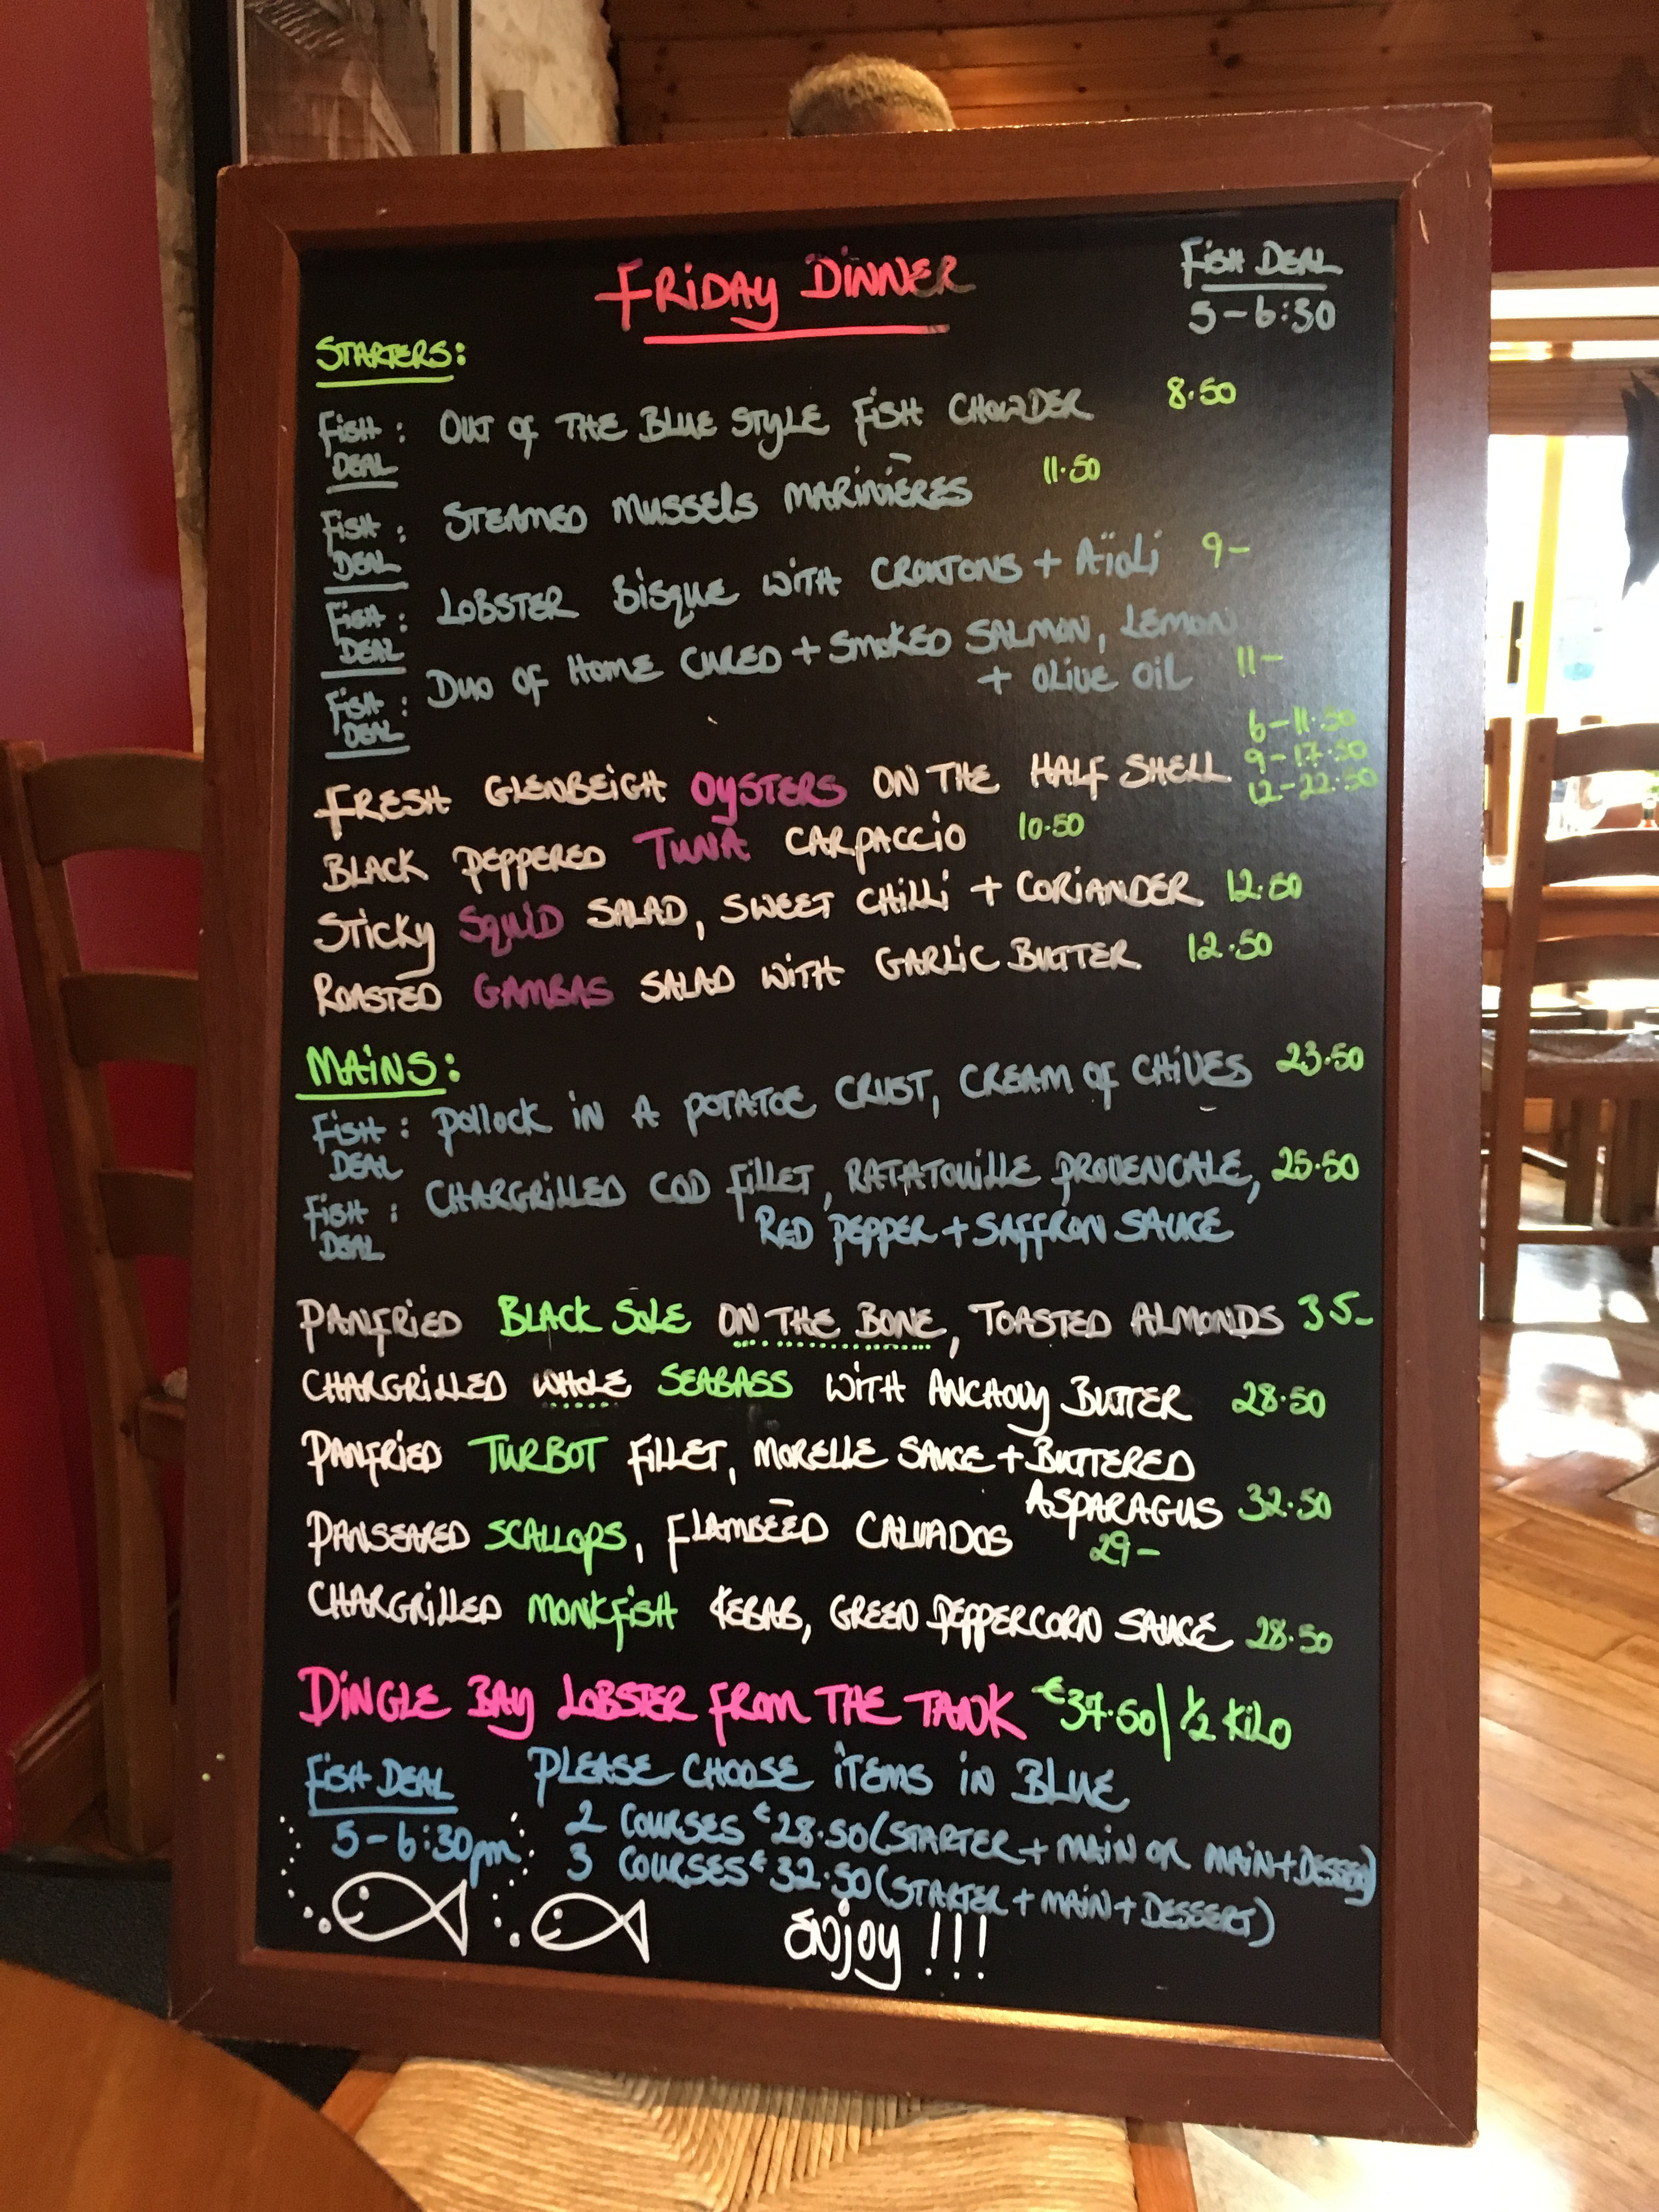 FRIDAY DINNER
FISH DEAL
5-6:30
STARTERS:
FISH DEAL : OUT OF THE BLUE STYLE FISH CHOWDER 8.50
FISH DEAL : STEAMED MUSSELS MARINIERES 11.50
FISH DEAL : LOBSTER BISQUE WITH CROUTONS + AÏOLI 9-
FISH DEAL : DUO OF HOME CURED + SMOKED SALMON, LEMON
+ OLIVE OIL 11-
6-11.50
9-17.50
12-22.50
FRESH GLENBEIGH OYSTERS ON THE HALF SHELL
BLACK PEPPERED TUNA CARPACCIO 10.50
STICKY SQUID SALAD, SWEET CHILLI + CORIANDER 12.50
ROASTED GAMBAS SALAD WITH GARLIC BUTTER 12.50
MAINS:
FISH DEAL : POLLOCK IN A POTATOE CRUST, CREAM OF CHIVES 23.50
FISH DEAL : CHARGRILLED COD FILLET, RATATOUILLE PROVENCALE, 25.50
RED PEPPER + SAFFRON SAUCE
PANFRIED BLACK SOLE ON THE BONE, TOASTED ALMONDS 35-
CHARGRILLED WHOLE SEABASS WITH ANCHOVY BUTTER 28.50
PANFRIED TURBOT FILLET, MORELLE SAUCE + BUTTERED
ASPARAGUS 32.50
PANSEARED SCALLOPS, FLAMBEED CALVADOS 29-
CHARGRILLED MONKFISH KEBAB, GREEN PEPPERCORN SAUCE 28.50
DINGLE BAY LOBSTER FROM THE TANK €37.50/½ KILO
FISH DEAL PLEASE CHOOSE ITEMS IN BLUE
5-6:30pm 2 COURSES €28.50 (STARTER + MAIN OR MAIN + DESSERT)
3 COURSES €32.50 (STARTER + MAIN + DESSERT)
ENJOY!!!